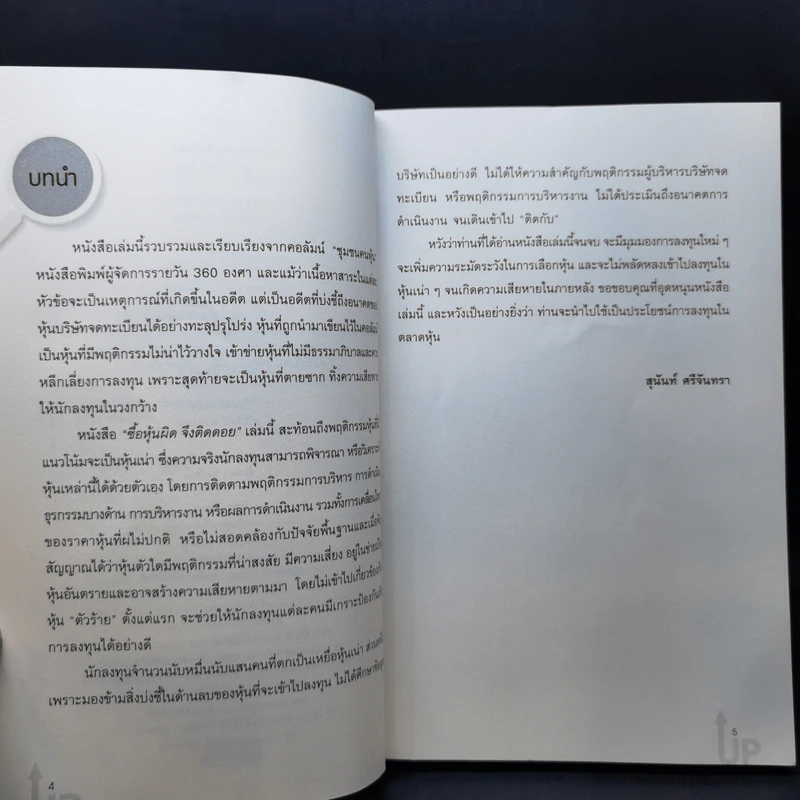 บทนำ
หนังสือเล่มนี้รวบรวมและเรียบเรียงจากคอลัมน์ "ชุมชนคนหุ้น"
หนังสือพิมพ์ผู้จัดการรายวัน 360 องศา และแม้ว่าเนื้อหาสาระในแต่ละ
หัวข้อจะเป็นเหตุการณ์ที่เกิดขึ้นในอดีต แต่เป็นอดีตที่บ่งชี้ถึงอนาคตของ
หุ้นบริษัทจดทะเบียนได้อย่างทะลุปรุโปร่ง หุ้นที่ถูกนำมาเขียนไว้ในคอลัมน์
เป็นหุ้นที่มีพฤติกรรมไม่น่าไว้วางใจ เข้าข่ายหุ้นที่ไม่มีธรรมาภิบาลและควร
หลีกเลี่ยงการลงทุน เพราะสุดท้ายจะเป็นหุ้นที่ตายซาก ทิ้งความเสียหาย
ให้นักลงทุนในวงกว้าง
หนังสือ "ซื้อหุ้นผิด จึงติดดอย" เล่มนี้ สะท้อนถึงพฤติกรรมหุ้นที่มี
แนวโน้มจะเป็นหุ้นเน่า ซึ่งความจริงนักลงทุนสามารถพิจารณา หรือวิเคราะห์
หุ้นเหล่านี้ได้ด้วยตัวเอง โดยการติดตามพฤติกรรมการบริหาร การดำเนิน
ธุรกรรมบางด้าน การบริหารงาน หรือผลการดำเนินงาน รวมทั้งการเคลื่อนไหว
ของราคาหุ้นที่ผิไม่ปกติ หรือไม่สอดคล้องกับปัจจัยพื้นฐานและเมื่อจับ
สัญญาณได้ว่าหุ้นตัวใดมีพฤติกรรมที่น่าสงสัย มีความเสี่ยง อยู่ในข่ายเป็น
หุ้นอันตรายและอาจสร้างความเสียหายตามมา โดยไม่เข้าไปเกี่ยวข้องกับ
หุ้น "ตัวร้าย" ตั้งแต่แรก จะช่วยให้นักลงทุนแต่ละคนมีเกราะป้องกัน
การลงทุนได้อย่างดี
นักลงทุนจำนวนนับหมื่นนับแสนคนที่ตกเป็นเหยื่อหุ้นเน่า
เพราะมองข้ามสิ่งบ่งชี้ในด้านลบของหุ้นที่จะเข้าไปลงทุน ไม่ได้ศึกษา
4
UP
บริษัทเป็นอย่างดี ไม่ได้ให้ความสำคัญกับพฤติกรรมผู้บริหารบริษัทจด
ทะเบียน หรือพฤติกรรมการบริหารงาน ไม่ได้ประเมินถึงอนาคตการ
ดำเนินงาน จนเดินเข้าไป "ติดกับ"
หวังว่าท่านที่ได้อ่านหนังสือเล่มนี้จนจบ จะมีมุมมองการลงทุนใหม่ ๆ
จะเพิ่มความระมัดระวังในการเลือกหุ้น และจะไม่พลัดหลงเข้าไปลงทุนใน
หุ้นเน่า ๆ จนเกิดความเสียหายในภายหลัง ขอขอบคุณที่อุดหนุนหนังสือ
เล่มนี้ และหวังเป็นอย่างยิ่งว่า ท่านจะนำไปใช้เป็นประโยชน์การลงทุนใน
ตลาดหุ้น
สุนันท์ ศรีจันทรา
5
UP